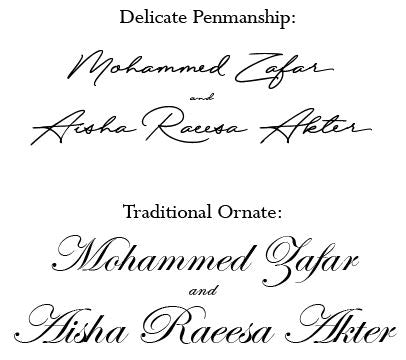 Delicate Penmanship:
Mohammed Zafar
and
Aisha Raeesa Akter
Traditional Ornate:
Mohammed Zafar
and
Aisha Raeesa Akter